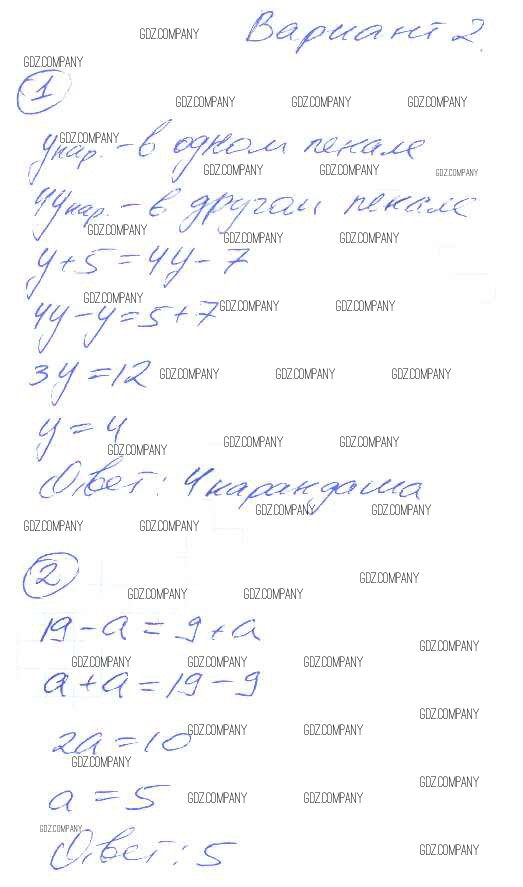 Вариант 2.
1
y кар. - в одном пенале
4y кар. - в другом пенале
y + 5 = 4y - 7
4y - y = 5 + 7
3y = 12
y = 4
Ответ: 4 карандаша
2
19 - a = 9 + a
a + a = 19 - 9
2a = 10
a = 5
Ответ: 5
GDZ.COMPANY